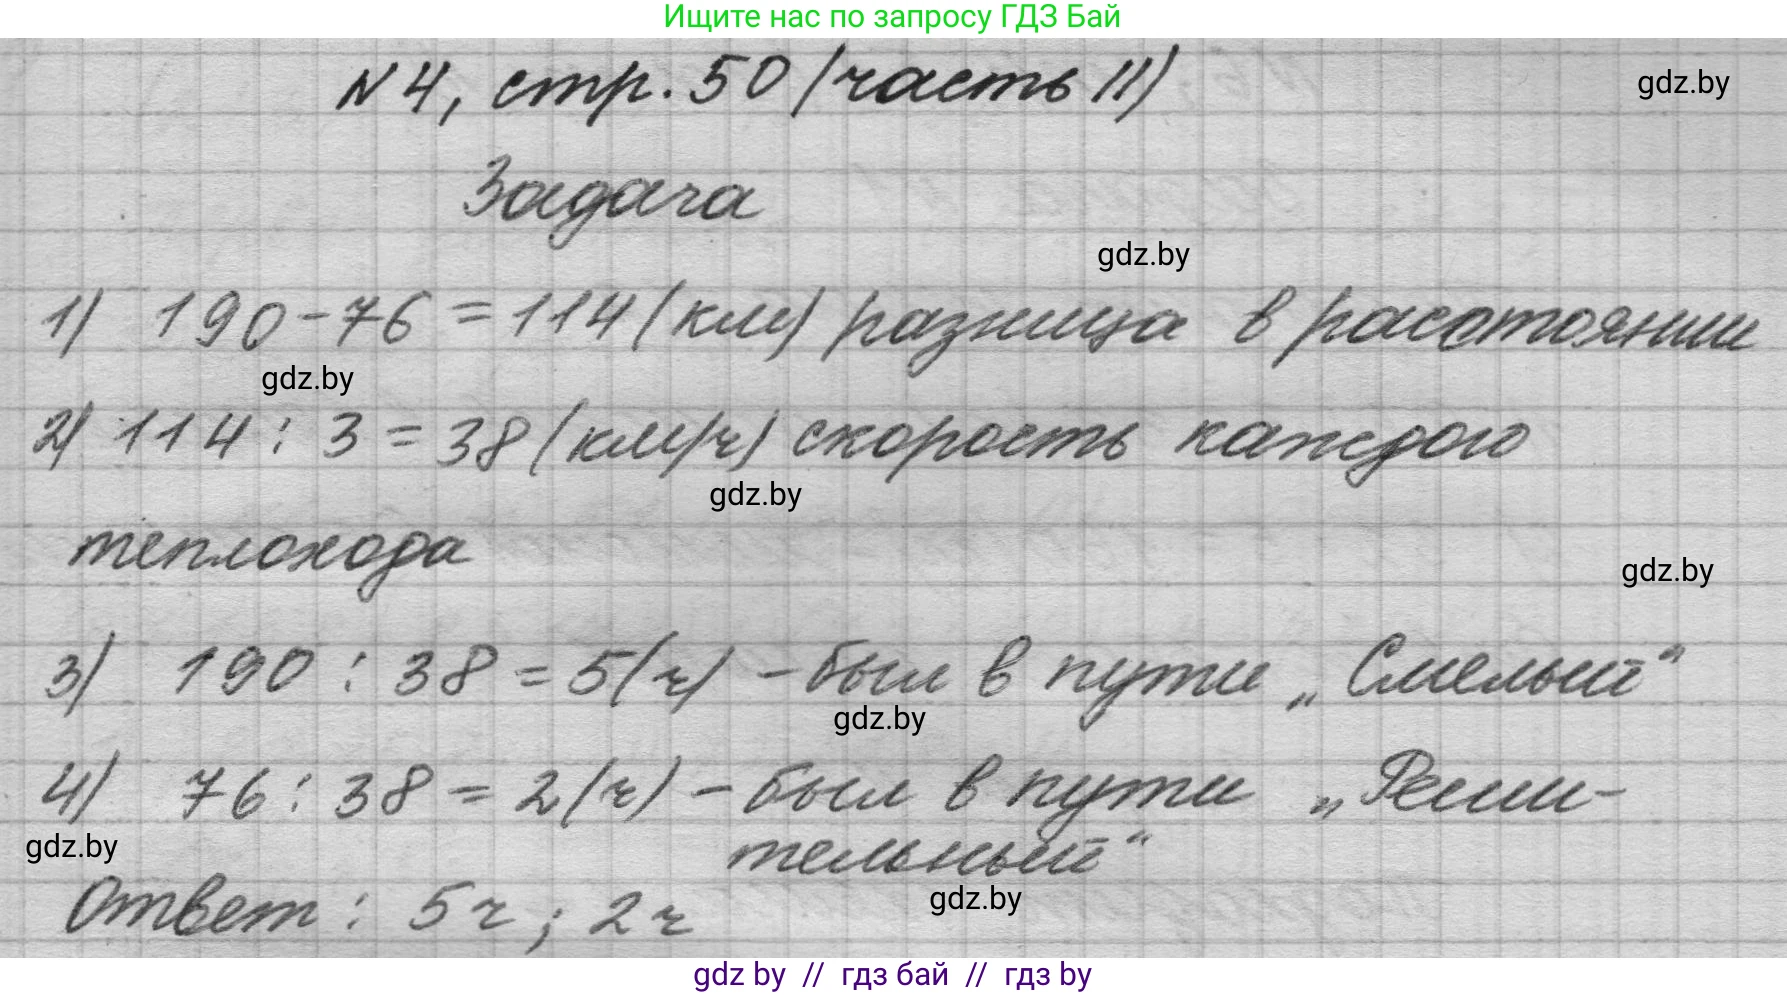 Ищите нас по запросу ГДЗ Бай
N 4, стр. 50 (часть II)
gdz.by
Задача
gdz.by
1) 190 - 76 = 114 (км) разница в расстоянии
gdz.by
2) 114 : 3 = 38 (км/ч) скорость каждого
gdz.by
теплохода
gdz.by
3) 190 : 38 = 5 (ч) - был в пути „Смелый“
gdz.by
4) 76 : 38 = 2 (ч) - был в пути „Реши-
тельный“
gdz.by
Ответ : 5 ч ; 2 ч
gdz.by
gdz by // гдз бай // гдз by